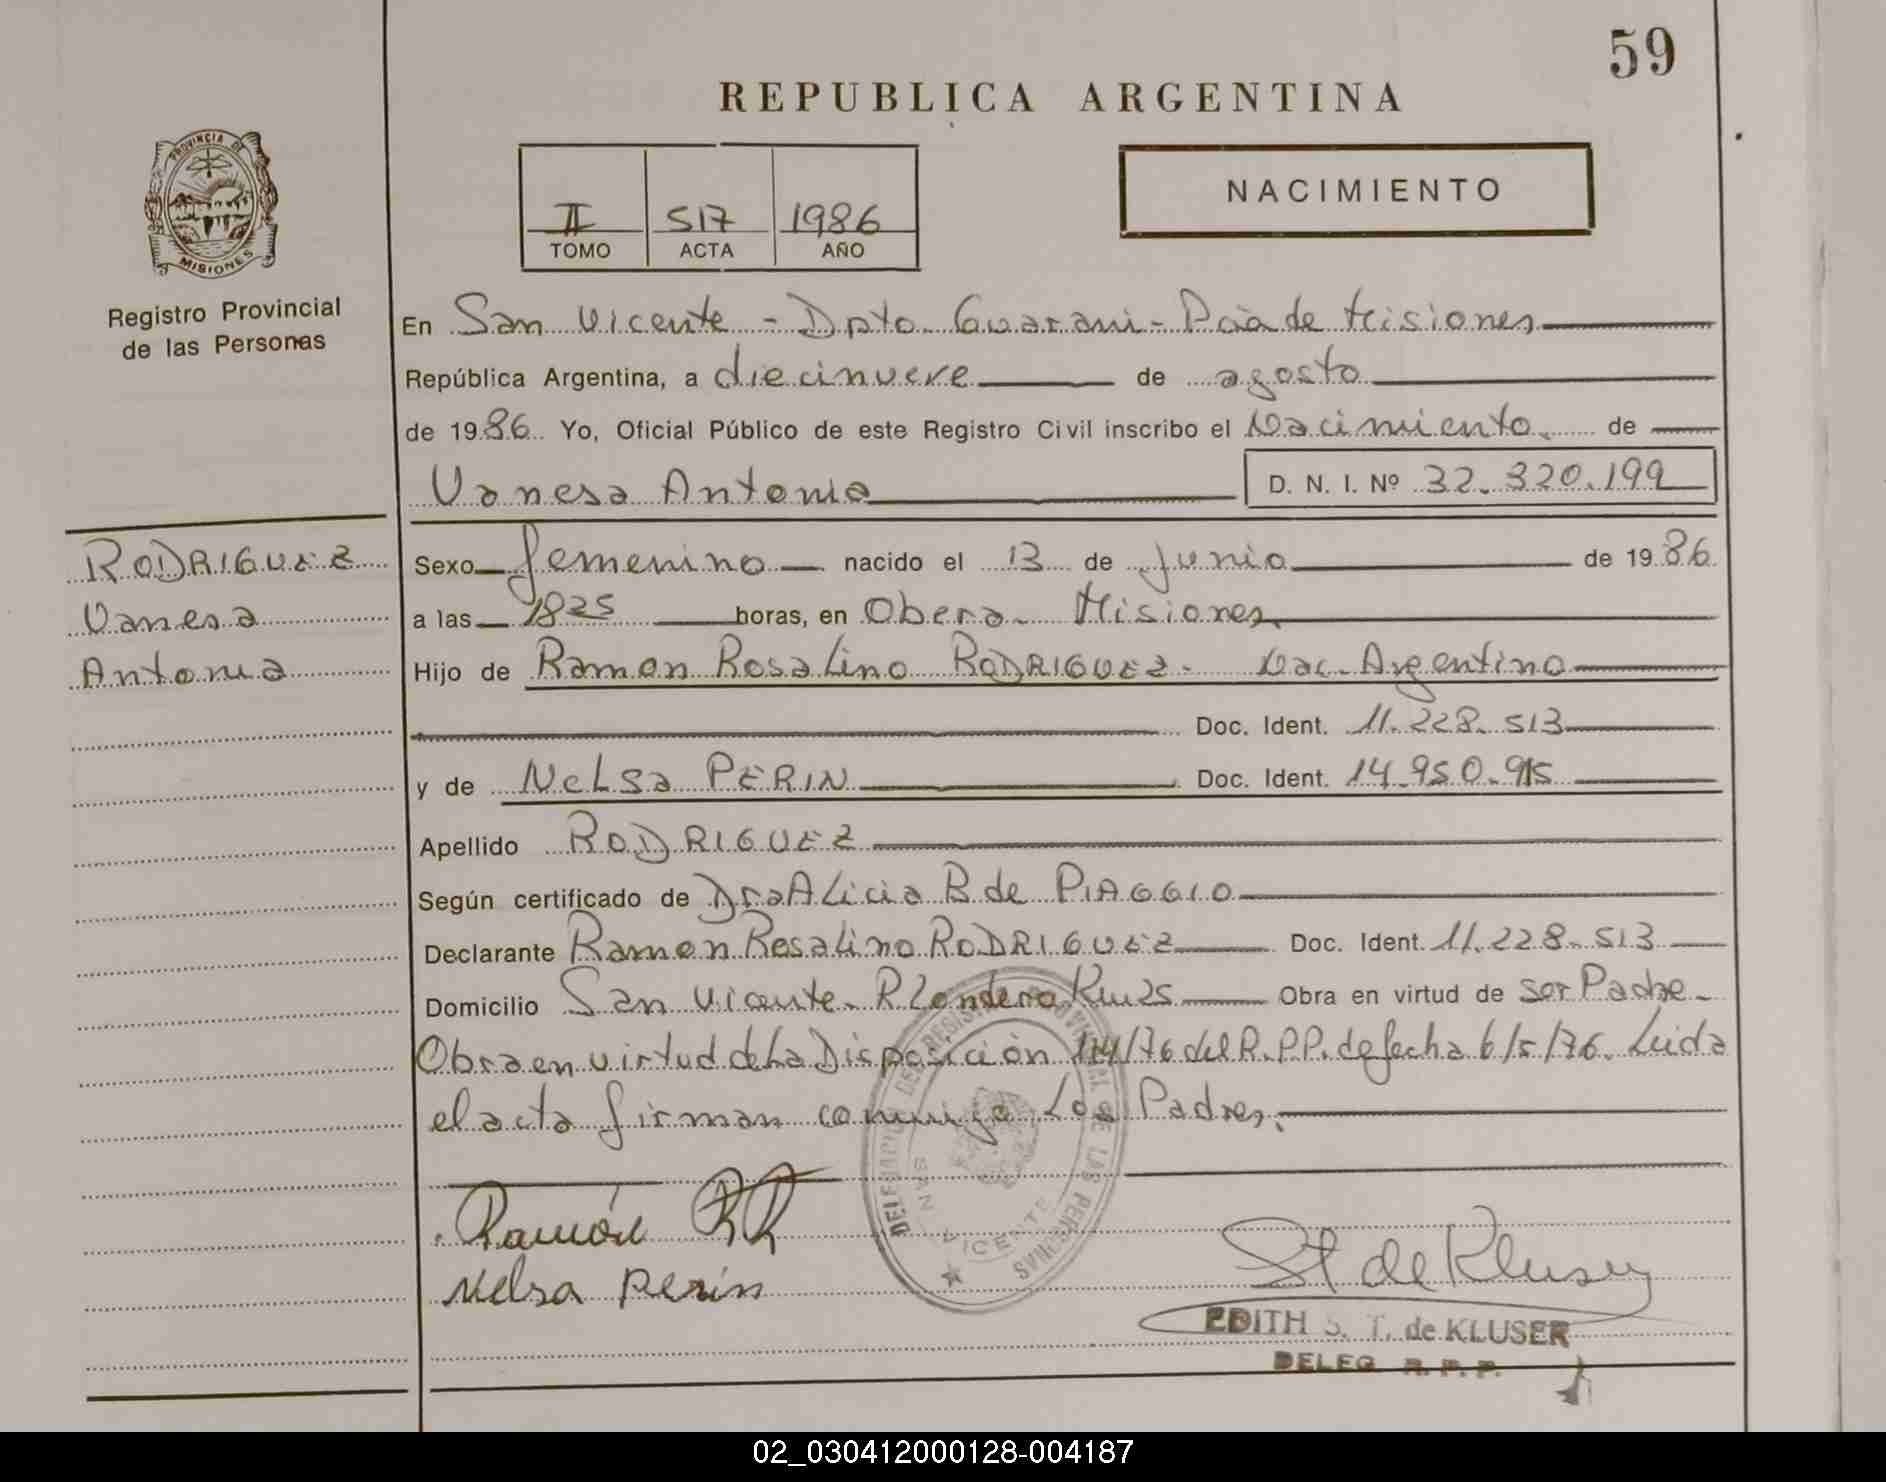 59
REPUBLICA ARGENTINA
PROVINCIA DE
MISIONES
Registro Provincial
de las Personas
II 517 1986
TOMO ACTA AÑO
NACIMIENTO
En San Vicente - Dpto. Guarani - Pcia de Misiones
República Argentina, a diecinueve de agosto
de 1986. Yo, Oficial Público de este Registro Civil inscribo el Nacimiento. de
Vanesa Antonia D. N. I. Nº 32.320.199
RODRIGUEZ
Vanesa
Antonia
Sexo femenino nacido el 13 de Junio de 1986.
a las 1825 horas, en Obera - Misiones.
Hijo de Ramon Rosalino RODRIGUEZ - Nac. Argentino
Doc. Ident. 11.228.513
y de Nelsa PERIN Doc. Ident. 14.950.915
Apellido RODRIGUEZ
Según certificado de Dra Alicia B de PIAGGIO
Declarante Ramon Rosalino RODRIGUEZ Doc. Ident. 11.228.513
Domicilio San Vicente - R Londero Km 25 Obra en virtud de ser Padre -
Obra en virtud de la Disposición /76 del R.P.P. de fecha 6/5/76. Leida
el acta firman conmigo Los Padres.
DELEGACION DEL REGISTRO PROVINCIAL DE LAS PERSONAS
SAN VICENTE
Ramón RR
Nelsa Perin
St de Kluser
EDITH S. T. de KLUSER
DELEG R. P. P.
02_030412000128-004187